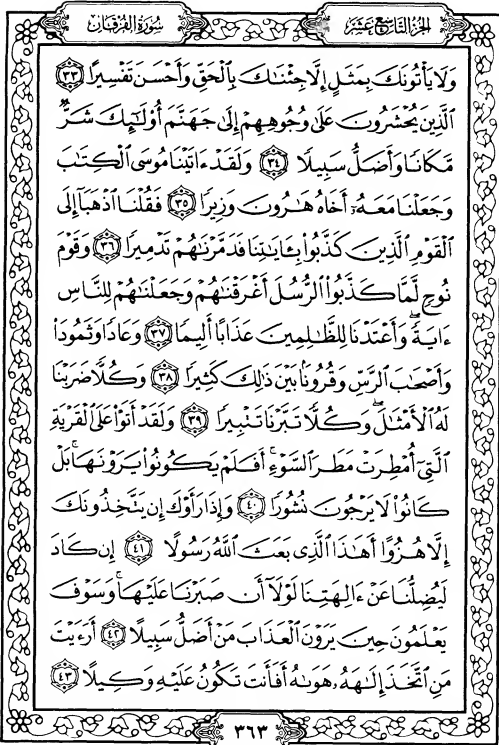 الجزء التاسع عشر
سورة الفرقان
وَلَا يَأْتُونَكَ بِمَثَلٍ إِلَّا جِئْنَٰكَ بِالْحَقِّ وَأَحْسَنَ تَفْسِيرًا ٣٣
الَّذِينَ يُحْشَرُونَ عَلَىٰ وُجُوهِهِمْ إِلَىٰ جَهَنَّمَ أُولَٰئِكَ شَرٌّ
مَّكَانًا وَأَضَلُّ سَبِيلًا ٣٤ وَلَقَدْ ءَاتَيْنَا مُوسَى الْكِتَٰبَ
وَجَعَلْنَا مَعَهُۥ أَخَاهُ هَٰرُونَ وَزِيرًا ٣٥ فَقُلْنَا اذْهَبَا إِلَى
الْقَوْمِ الَّذِينَ كَذَّبُوا۟ بِـَٔايَٰتِنَا فَدَمَّرْنَٰهُمْ تَدْمِيرًا ٣٦ وَقَوْمَ
نُوحٍ لَّمَّا كَذَّبُوا۟ الرُّسُلَ أَغْرَقْنَٰهُمْ وَجَعَلْنَٰهُمْ لِلنَّاسِ
ءَايَةً ۖ وَأَعْتَدْنَا لِلظَّٰلِمِينَ عَذَابًا أَلِيمًا ٣٧ وَعَادًا وَثَمُودَا۟
وَأَصْحَٰبَ الرَّسِّ وَقُرُونًۢا بَيْنَ ذَٰلِكَ كَثِيرًا ٣٨ وَكُلًّا ضَرَبْنَا
لَهُ الْأَمْثَٰلَ ۖ وَكُلًّا تَبَّرْنَا تَتْبِيرًا ٣٩ وَلَقَدْ أَتَوْا۟ عَلَى الْقَرْيَةِ
الَّتِىٓ أُمْطِرَتْ مَطَرَ السَّوْءِ ۚ أَفَلَمْ يَكُونُوا۟ يَرَوْنَهَا ۚ بَلْ
كَانُوا۟ لَا يَرْجُونَ نُشُورًا ٤٠ وَإِذَا رَأَوْكَ إِن يَتَّخِذُونَكَ
إِلَّا هُزُوًا أَهَٰذَا الَّذِى بَعَثَ اللَّهُ رَسُولًا ٤١ إِن كَادَ
لَيُضِلُّنَا عَنْ ءَالِهَتِنَا لَوْلَآ أَن صَبَرْنَا عَلَيْهَا ۚ وَسَوْفَ
يَعْلَمُونَ حِينَ يَرَوْنَ الْعَذَابَ مَنْ أَضَلُّ سَبِيلًا ٤٢ أَرَءَيْتَ
مَنِ اتَّخَذَ إِلَٰهَهُۥ هَوَىٰهُ أَفَأَنتَ تَكُونُ عَلَيْهِ وَكِيلًا ٤٣
٣٦٣